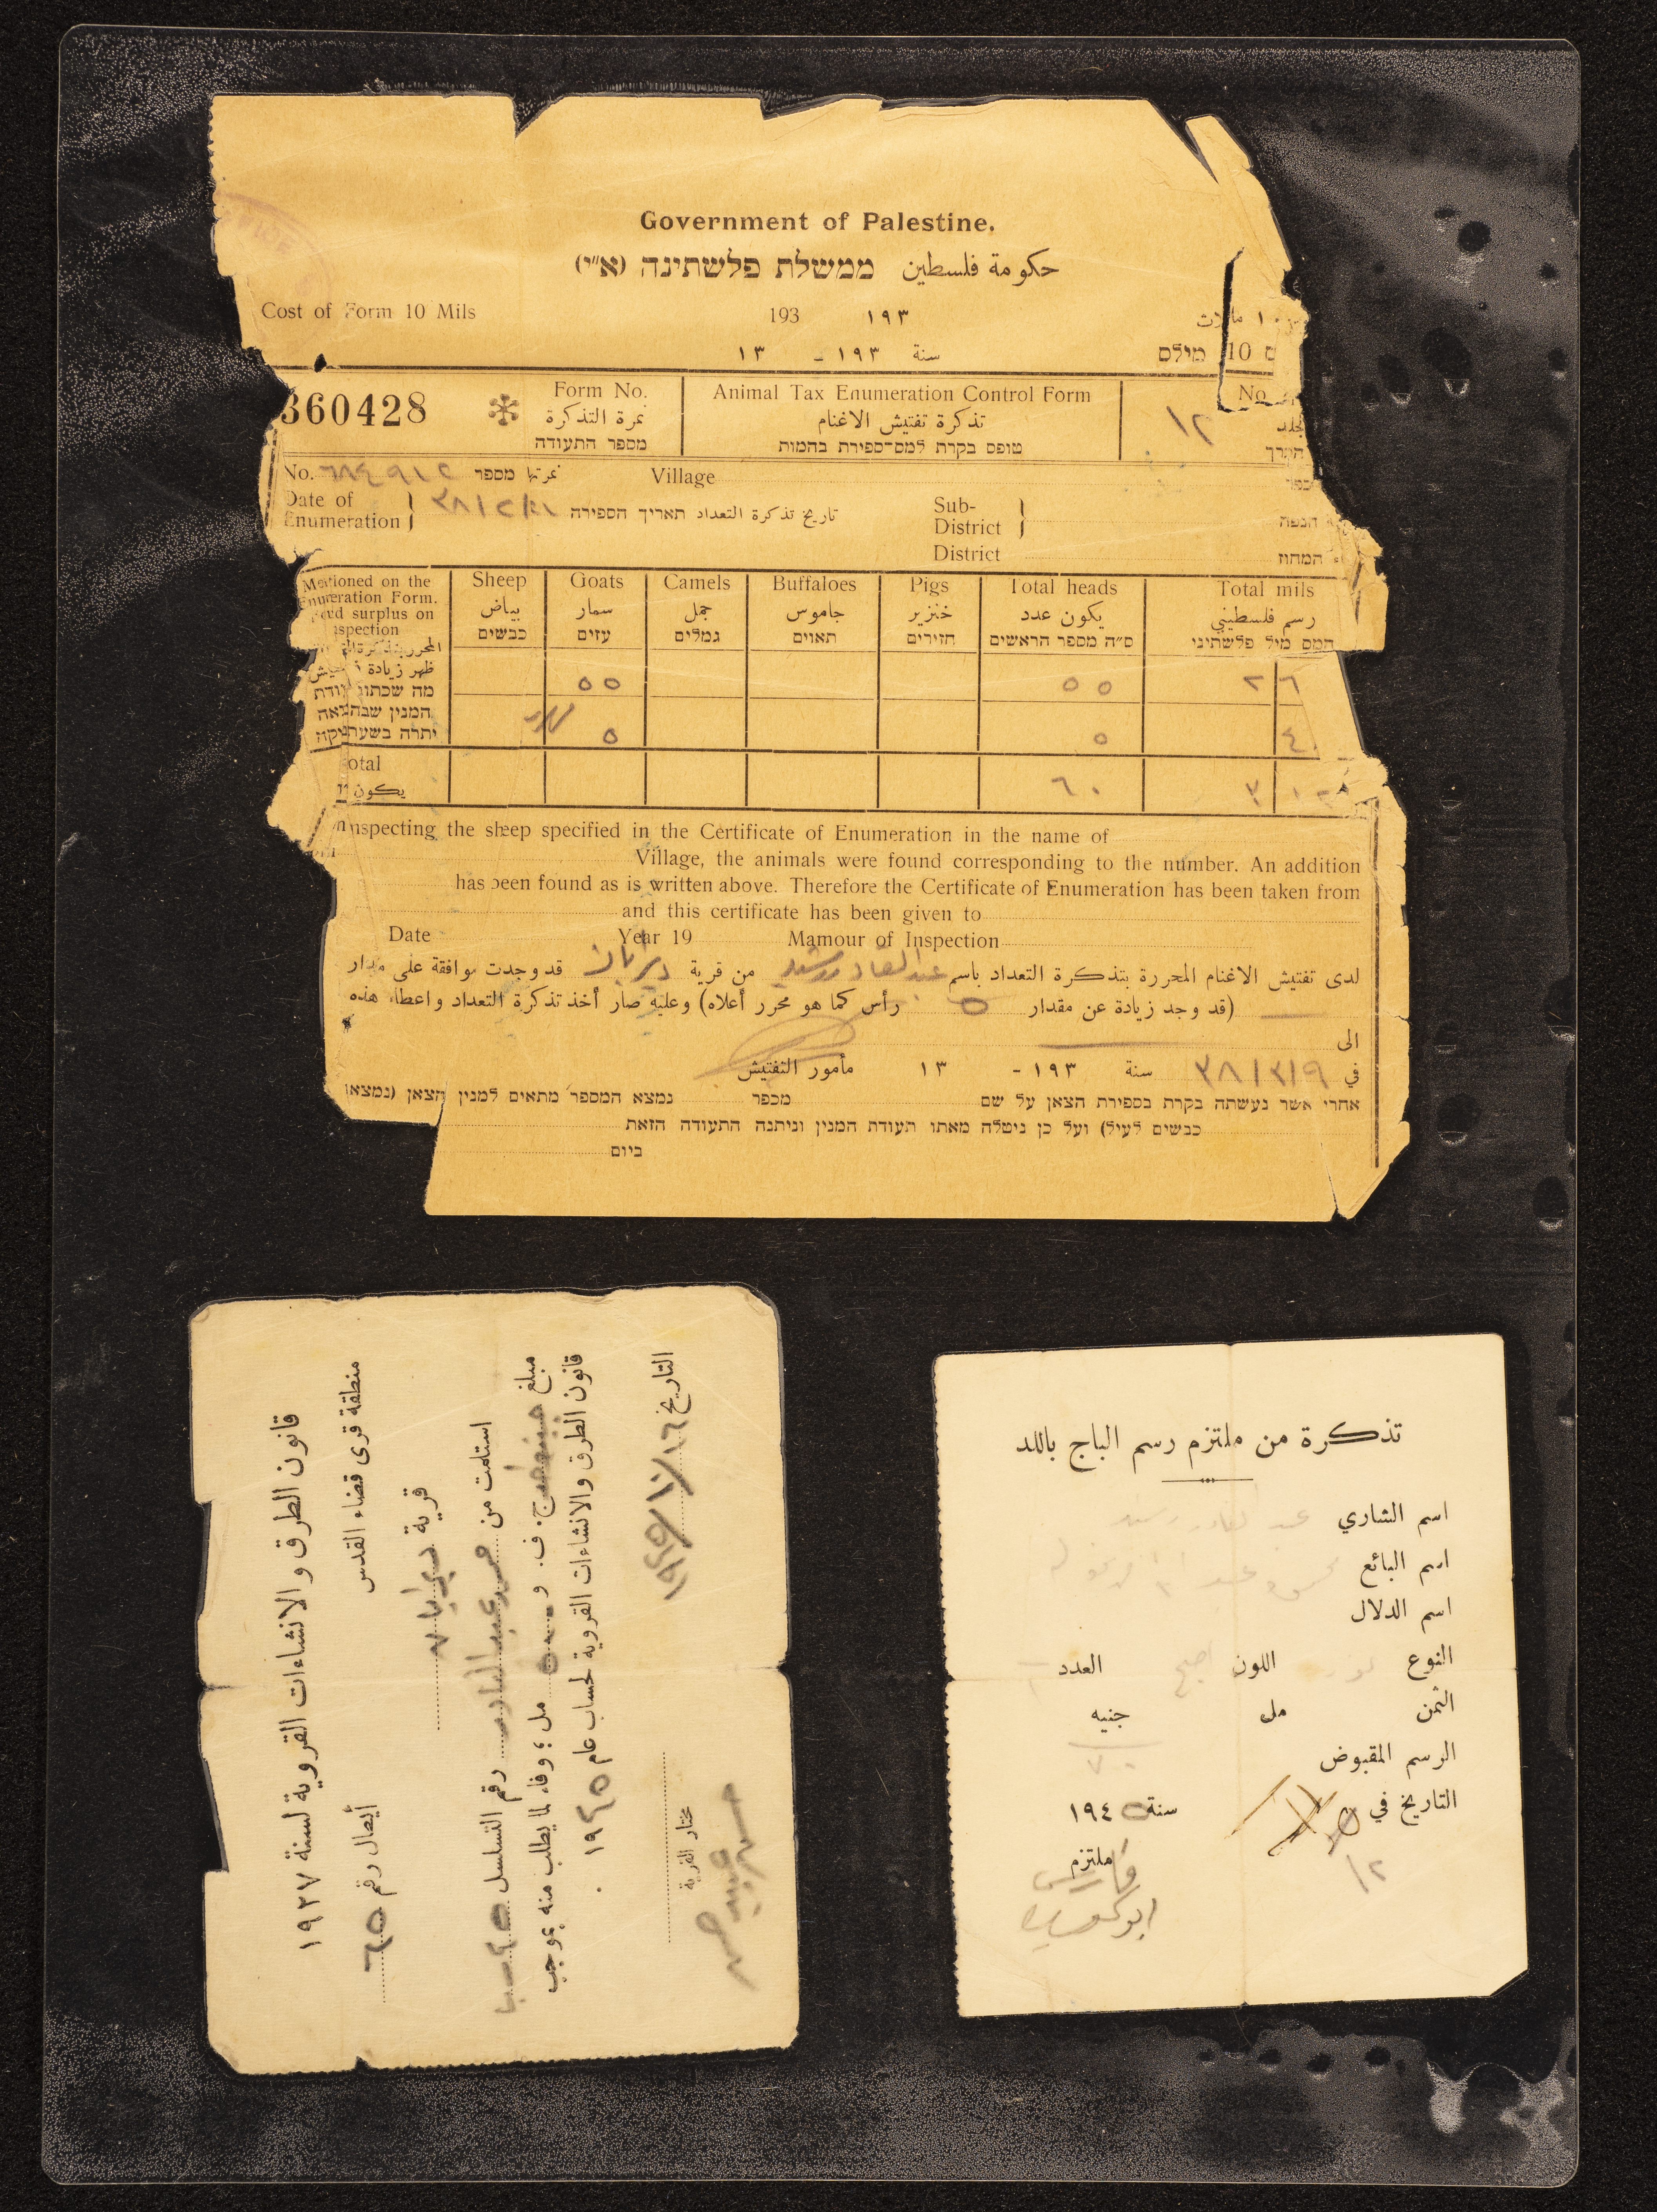 Government of Palestine.
حكومة فلسطين ממשלת פלשתינה (א״י)
Cost of Form 10 Mils 193 ١٩٣ ١٠
סנة ١٩٣ - ١٣ 10 מילס
360428 Form No. Animal Tax Enumeration Control Form No
نمرة التذكرة تذكرة تفتيش الاغنام ١٢ جلد
מספר התעודה טופס בקרת למס־ספירת בהמות
No. ٦٨٤٩١٥ نمرتها מספר Village
Date of Enumeration تاريخ تذكرة التعداد תאריך הספירה Sub-District הנפה
District המחוז
Mentioned on the Sheep Goats Camels Buffaloes Pigs Total heads Total mils
Enumeration Form. بياض سمار جمل جاموس خنزير يكون عدد رسم فلسطيني
surplus on כבשים עזים גמלים תאוים חזירים ס״ה מספר הראשים המס מיל פלשתיני
ظهر زيادة
מה שכתוב ٥٥ ٥٥ ٢ ٦
המנין
יתרה ٥ ٥ ٤٠
يكون ٦٠ ٣
inspecting the sheep specified in the Certificate of Enumeration in the name of
Village, the animals were found corresponding to the number. An addition
has been found as is written above. Therefore the Certificate of Enumeration has been taken from
and this certificate has been given to
Date Year 19 Mamour of Inspection
لدى تفتيش الاغنام المحررة بتذكرة التعداد باسم عبد القادر رشيد من قرية ديرابان قد وجدت موافقة على مقدار
(قد وجد زيادة عن مقدار ٥ رأس كما هو محرر أعلاه) وعليه صار أخذ تذكرة التعداد واعطاء هذه
الى
في ٣٨/٣/٩ سنة ١٩٣ - ١٣ مأمور التفتيش
אחרי אשר נעשתה בקרת בספירת הצאן על שם מכפר נמצא המספר מתאים למנין הצאן (נמצאו
כבשים לעיל) ועל כן ניטלה מאתו תעודת המנין וניתנה התעודה הזאת
ביום
قانون الطرق والانشاءات القروية لسنة ١٩٢٧
منطقة قرى قضاء القدس أيصال رقم ٦٥
قرية ديرابان
استلمت من محمد عبد القادر رقم التسلسل
مبلغ ج. ف. و ٥٠٠ مل ؛ وفاء لما يطلب منه بموجب
قانون الطرق والانشاءات القروية لحساب عام ١٩٤٥ .
التاريخ ١٩٤٥/١٠/١٦ مختار القرية
تذكرة من ملتزم رسم الباج باللد
اسم الشاري عبد القادر رشيد
اسم البائع
اسم الدلال
النوع اللون العدد
الثمن مل جنيه
الرسم المقبوض ٧٠
التاريخ في سنة ١٩٤٥
١٢
ملتزم